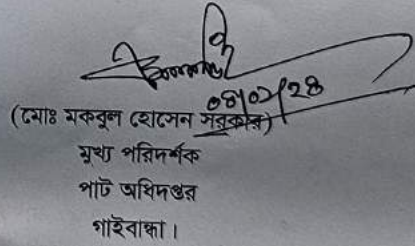 ০৪/০২/২৪
(মোঃ মকবুল হোসেন সরকার)
মুখ্য পরিদর্শক
পাট অধিদপ্তর
গাইবান্ধা।